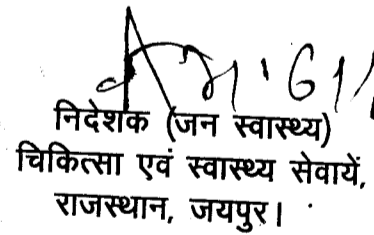 निदेशक (जन स्वास्थ्य)
चिकित्सा एवं स्वास्थ्य सेवायें,
राजस्थान, जयपुर।